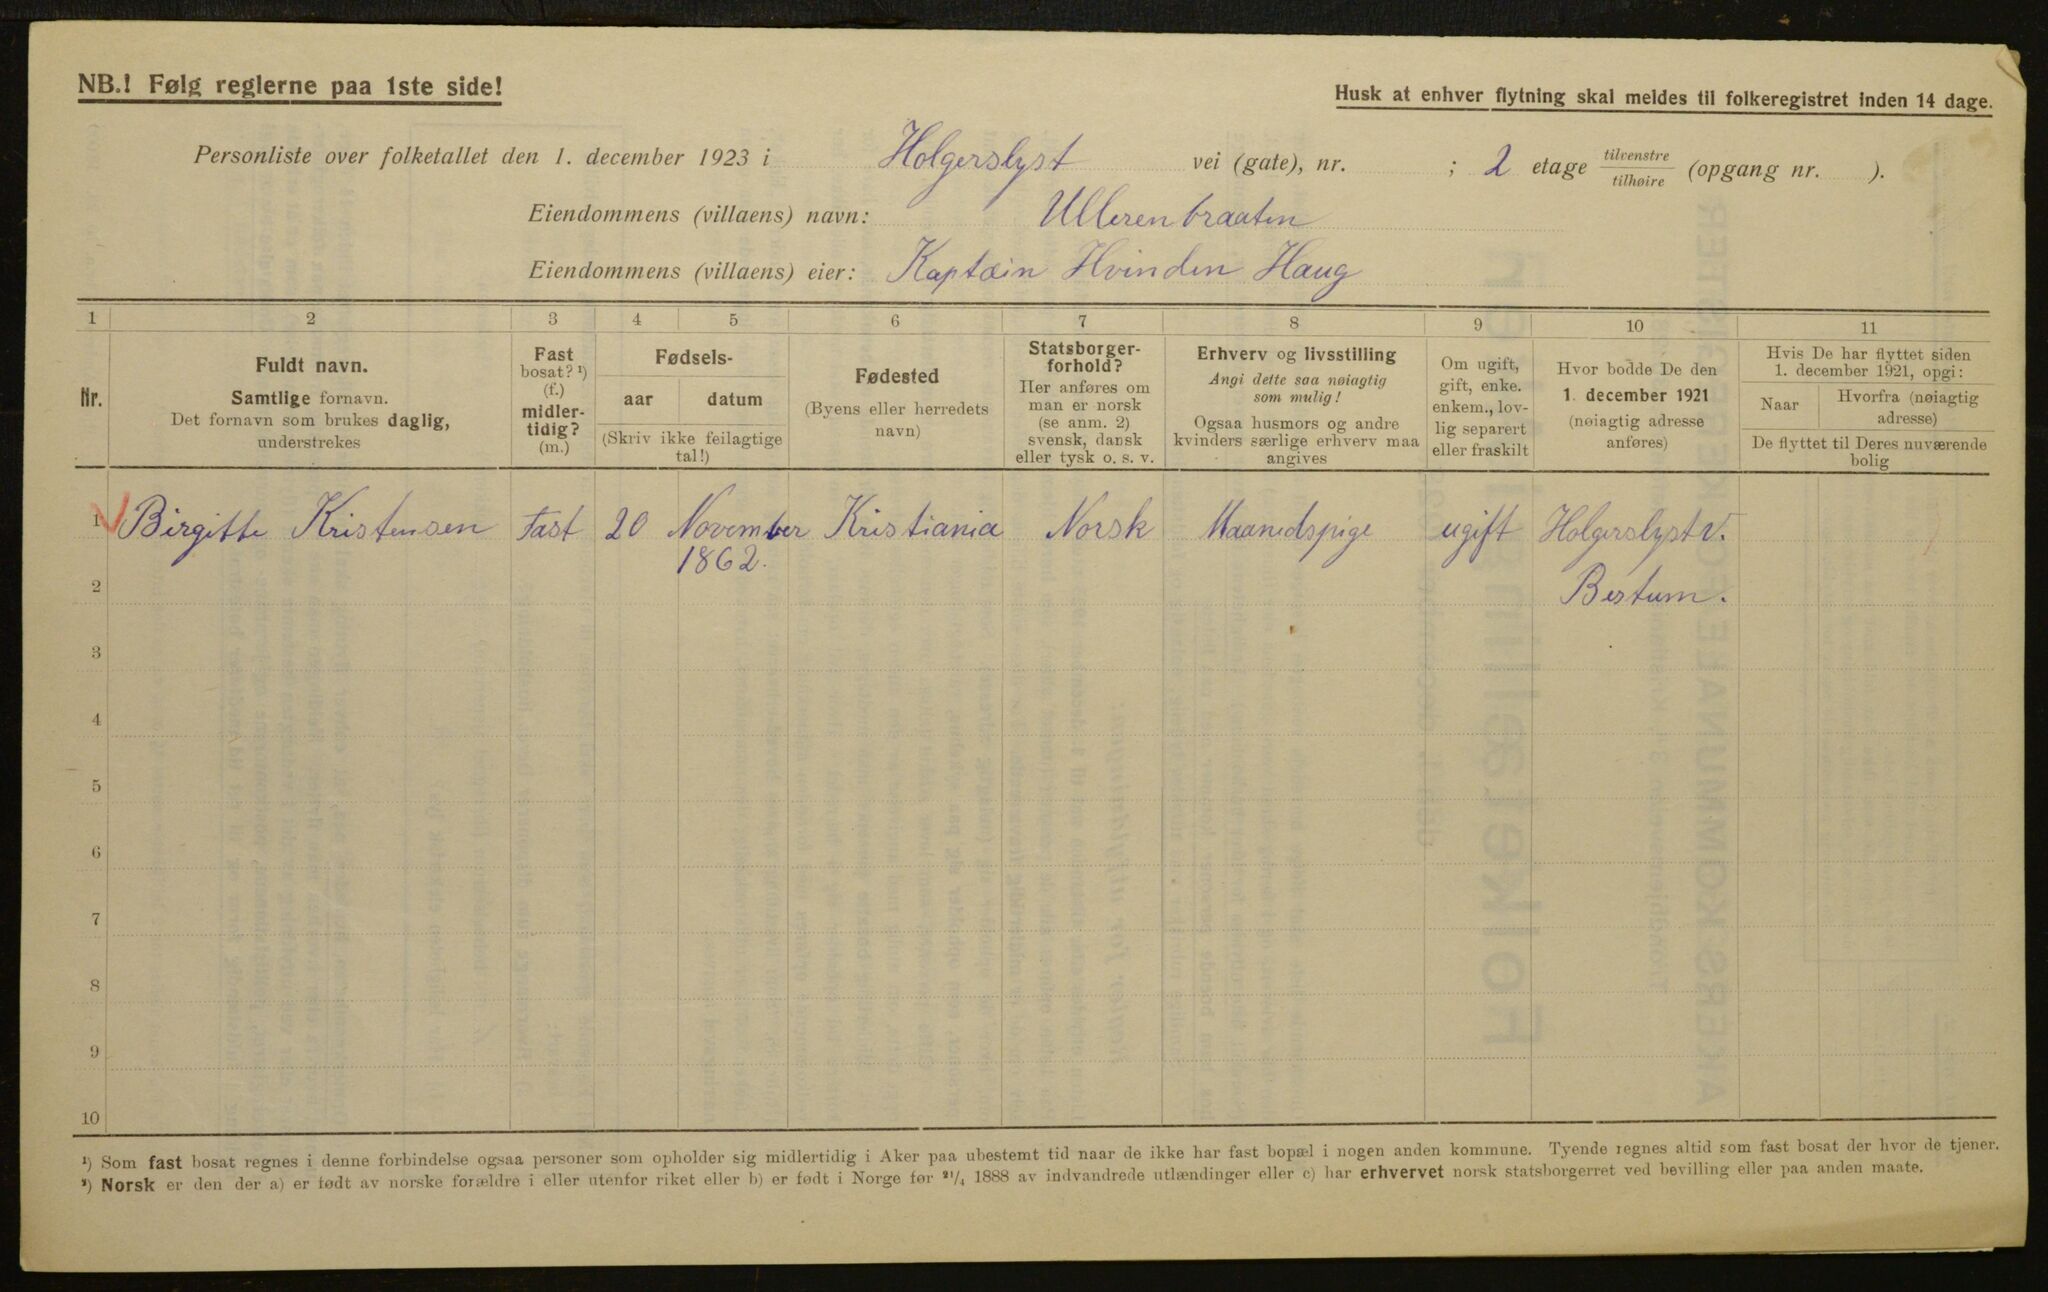 NB.! Følg reglerne paa 1ste side!
Husk at enhver flytning skal meldes til folkeregistret inden 14 dage.
Personliste over folketallet den 1. december 1923 i Holgerslyst vei (gate), nr. ; 2 etage tilvenstre/tilhøire (opgang nr. ).
Eiendommens (villaens) navn: Ullerenbraaten
Eiendommens (villaens) eier: Kaptein Hvinden Haug
1 2 3 4 5 6 7 8 9 10 11
Nr.
Fuldt navn.
Samtlige fornavn.
Det fornavn som brukes daglig,
understrekes
Fast
bosat? ¹)
(f.)
midler-
tidig?
(m.)
Fødsels-
aar datum
(Skriv ikke feilagtige
tal!)
Fødested
(Byens eller herredets
navn)
Statsborger-
forhold?
Her anføres om
man er norsk
(se anm. 2)
svensk, dansk
eller tysk o. s. v.
Erhverv og livsstilling
Angi dette saa nøiagtig
som mulig!
Ogsaa husmors og andre
kvinders særlige erhverv maa
angives
Om ugift,
gift, enke.
enkem., lov-
lig separert
eller fraskilt
Hvor bodde De den
1. december 1921
(nøiagtig adresse
anføres)
Hvis De har flyttet siden
1. december 1921, opgi:
Naar
Hvorfra (nøiagtig
adresse)
De flyttet til Deres nuværende
bolig
1 Birgitte Kristensen Fast 20 November Kristiania Norsk Maanedspige ugift Holgerslystv.
1862.
2 Bestum.
3
4
5
6
7
8
9
10
¹) Som fast bosat regnes i denne forbindelse ogsaa personer som opholder sig midlertidig i Aker paa ubestemt tid naar de ikke har fast bopæl i nogen anden kommune. Tyende regnes altid som fast bosat der hvor de tjener.
²) Norsk er den der a) er født av norske forældre i eller utenfor riket eller b) er født i Norge før 21/4 1888 av indvandrede utlændinger eller c) har erhvervet norsk statsborgerret ved bevilling eller paa anden maate.